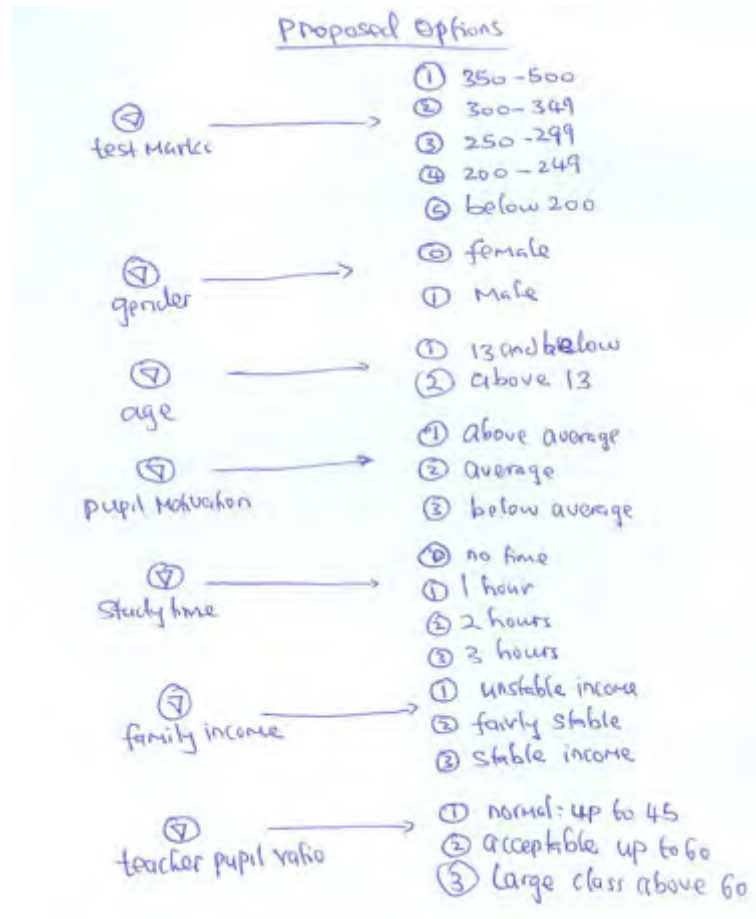 Proposed Options
test Marks
① 350-500
② 300-349
③ 250-299
④ 200-249
⑤ below 200
gender
⓪ female
① Male
age
① 13 and below
② above 13
pupil Motivation
① above average
② average
③ below average
Study time
⓪ no time
① 1 hour
② 2 hours
③ 3 hours
family income
① unstable income
② fairly stable
③ stable income
teacher pupil ratio
① normal: up to 45
② acceptable up to 60
③ Large class above 60